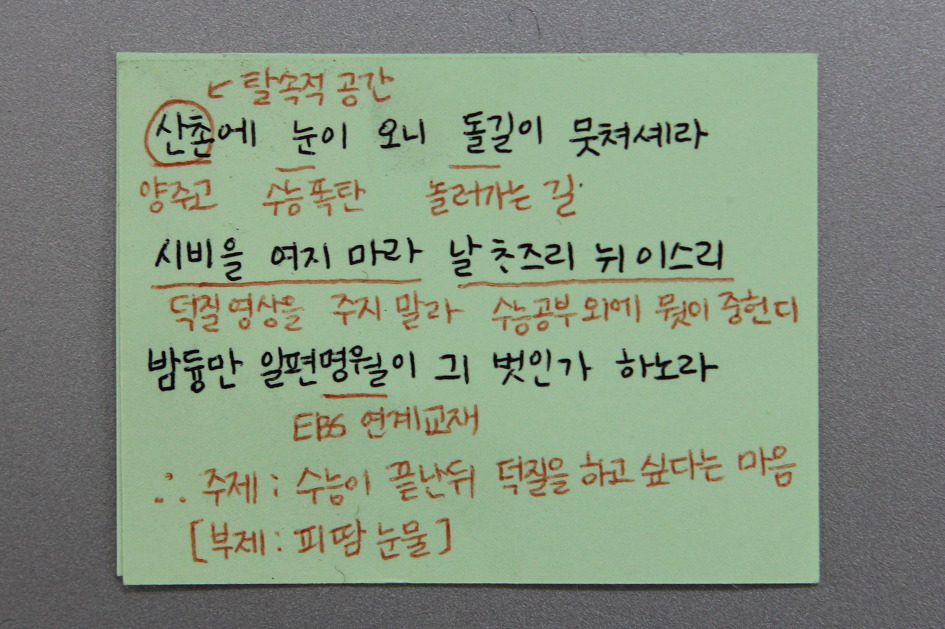 ↙ 탈속적 공간
산촌에 눈이 오니 돌길이 뭇쳐셰라
양주고 수능폭탄 놀러가는 길
시비을 여지 마라 날 ᄎᆞ즈리 뉘 이스리
덕질영상을 주지 말라 수능공부외에 뭣이 중헌디
밤듕만 일편명월이 긔 벗인가 하노라
EBS 연계교재
∴ 주제 : 수능이 끝난뒤 덕질을 하고 싶다는 마음
[부제 : 피땀 눈물]